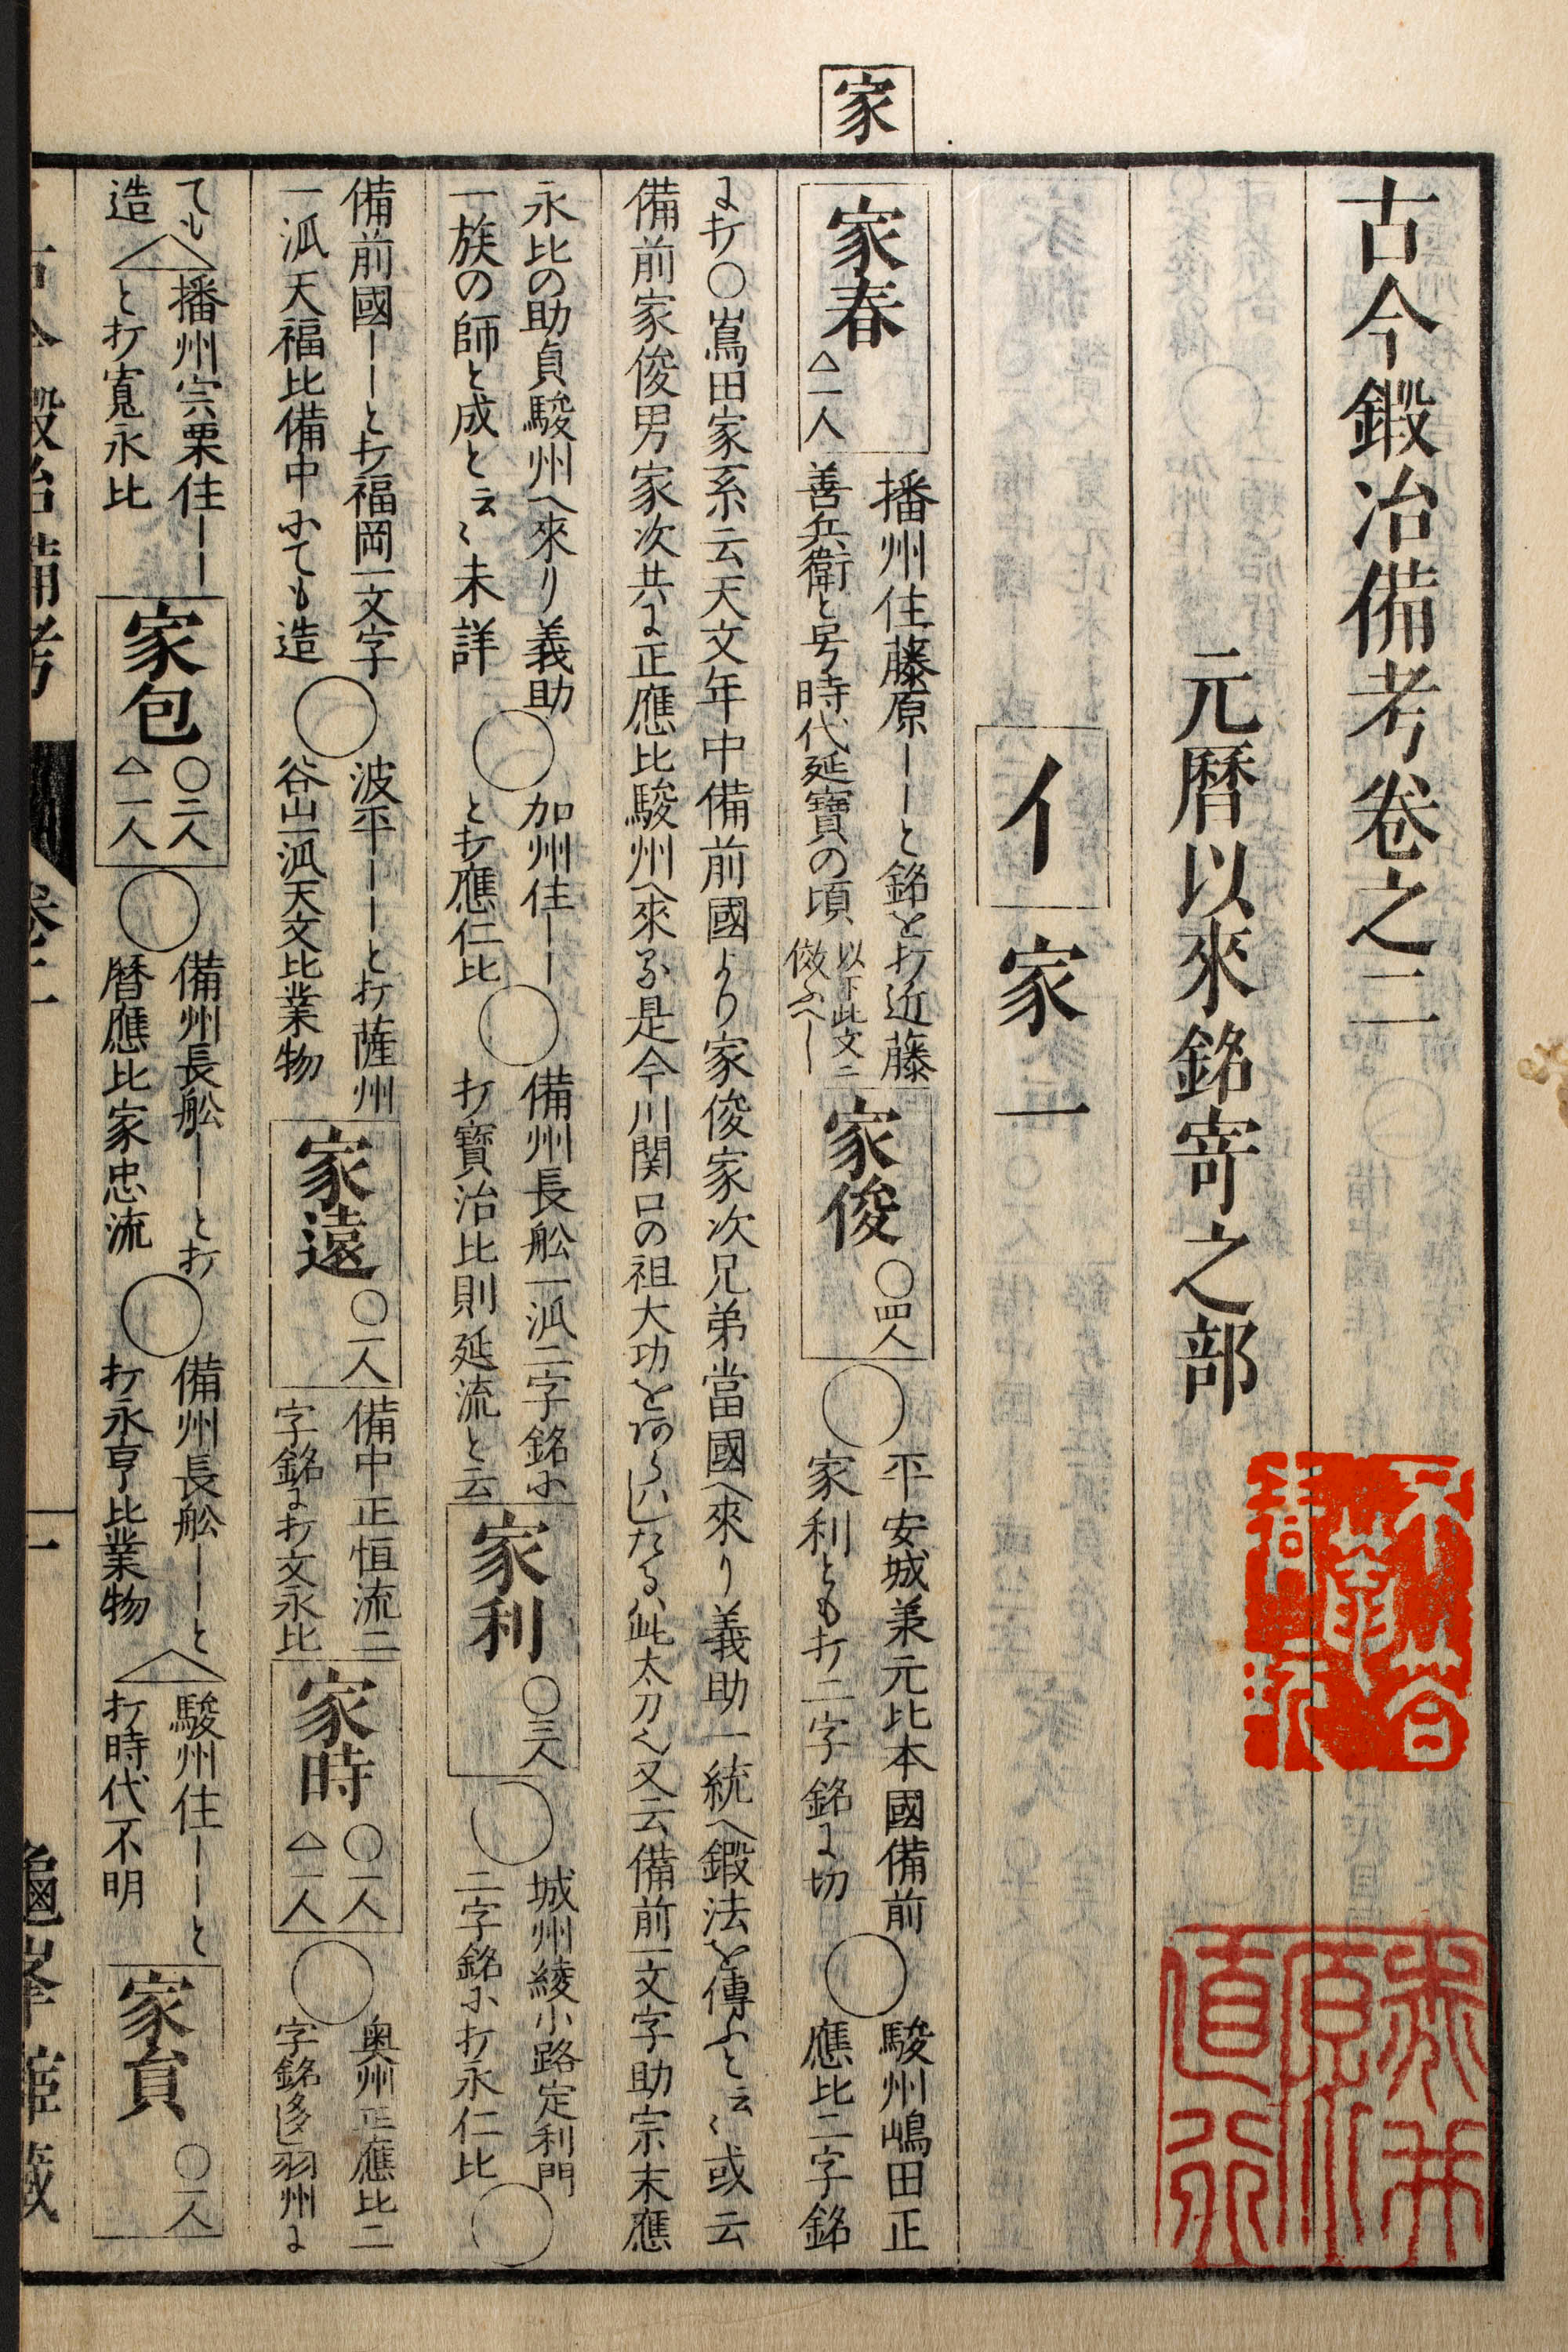 家
古今鍛冶備考卷之二
元暦以來銘寄之部
イ 家一
家春 △一人
播州住藤原ーーと銘を打近藤
善兵衛と号時代延寶の頃 以下此文ニ
倣ふへし
家俊 〇四人
〇 平安城兼元比本國備前
家利とも打二字銘に切
〇 駿州嶋田正
應比二字銘
に打〇嶌田家系云天文年中備前國より家俊家次兄弟當國へ來り義助一統へ鍛法を傳ふと云〻或云
備前家俊男家次共に正應比駿州へ來る是今川関口の祖大功をあらはしたる此太刀也又云備前一文字助宗末應
永比の助貞駿州へ來り義助
一族の師と成と云〻未詳
〇 加州住ーー
と打應仁比
〇 備州長舩一派二字銘ニ
打寶治比則延流と云
家利 〇三人
〇 城州綾小路定利門
二字銘ニ打永仁比
〇
備前國ーーと打福岡一文字
一派天福比備中ニても造
〇 波平ーーと打薩州
谷山一派天文比業物
家遠 〇一人
備中正恒流二
字銘に打文永比
家時 〇一人
△一人
〇 奥州正應比二
字銘多し羽州に
ても
造
△ 播州宍栗住ーー
と打寛永比
家包 〇二人
△一人
〇 備州長舩ーーと打
暦應比家忠流
〇 備州長舩ーーと
打永享比業物
△ 駿州住ーーと
打時代不明
家員 〇一人